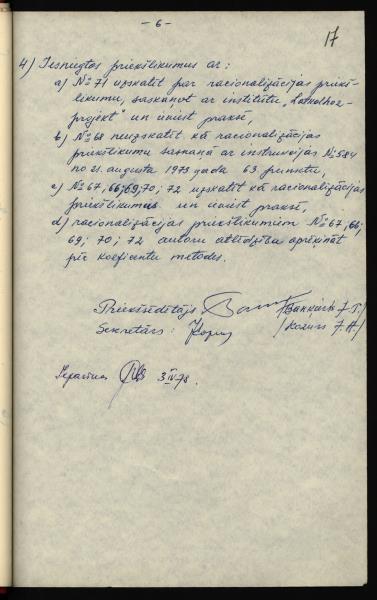 - 6 -
17
4) Iesniegtos priekšlikumus ar:
a) № 71 uzskatīt par racionalizācijas priekš-
likumu, saskaņot ar institūtu „Latkolhoz-
projekt" un ieviest praksē,
b) № 68 neuzskatīt kā racionalizācijas
priekšlikumu saskaņā ar instrukcijas № 584
no 21. augusta 1973 gada 63 punktu,
c) № 67, 66; 69; 70; 72 uzskatīt kā racionalizācijas
priekšlikumus un ieviest praksē,
d) racionalizācijas priekšlikumiem № 67; 66;
69; 70; 72 autoru atlīdzību aprēķināt
pēc koeficentu metodes.
Priekšsēdētājs
Sekretārs:
3 IV 78.